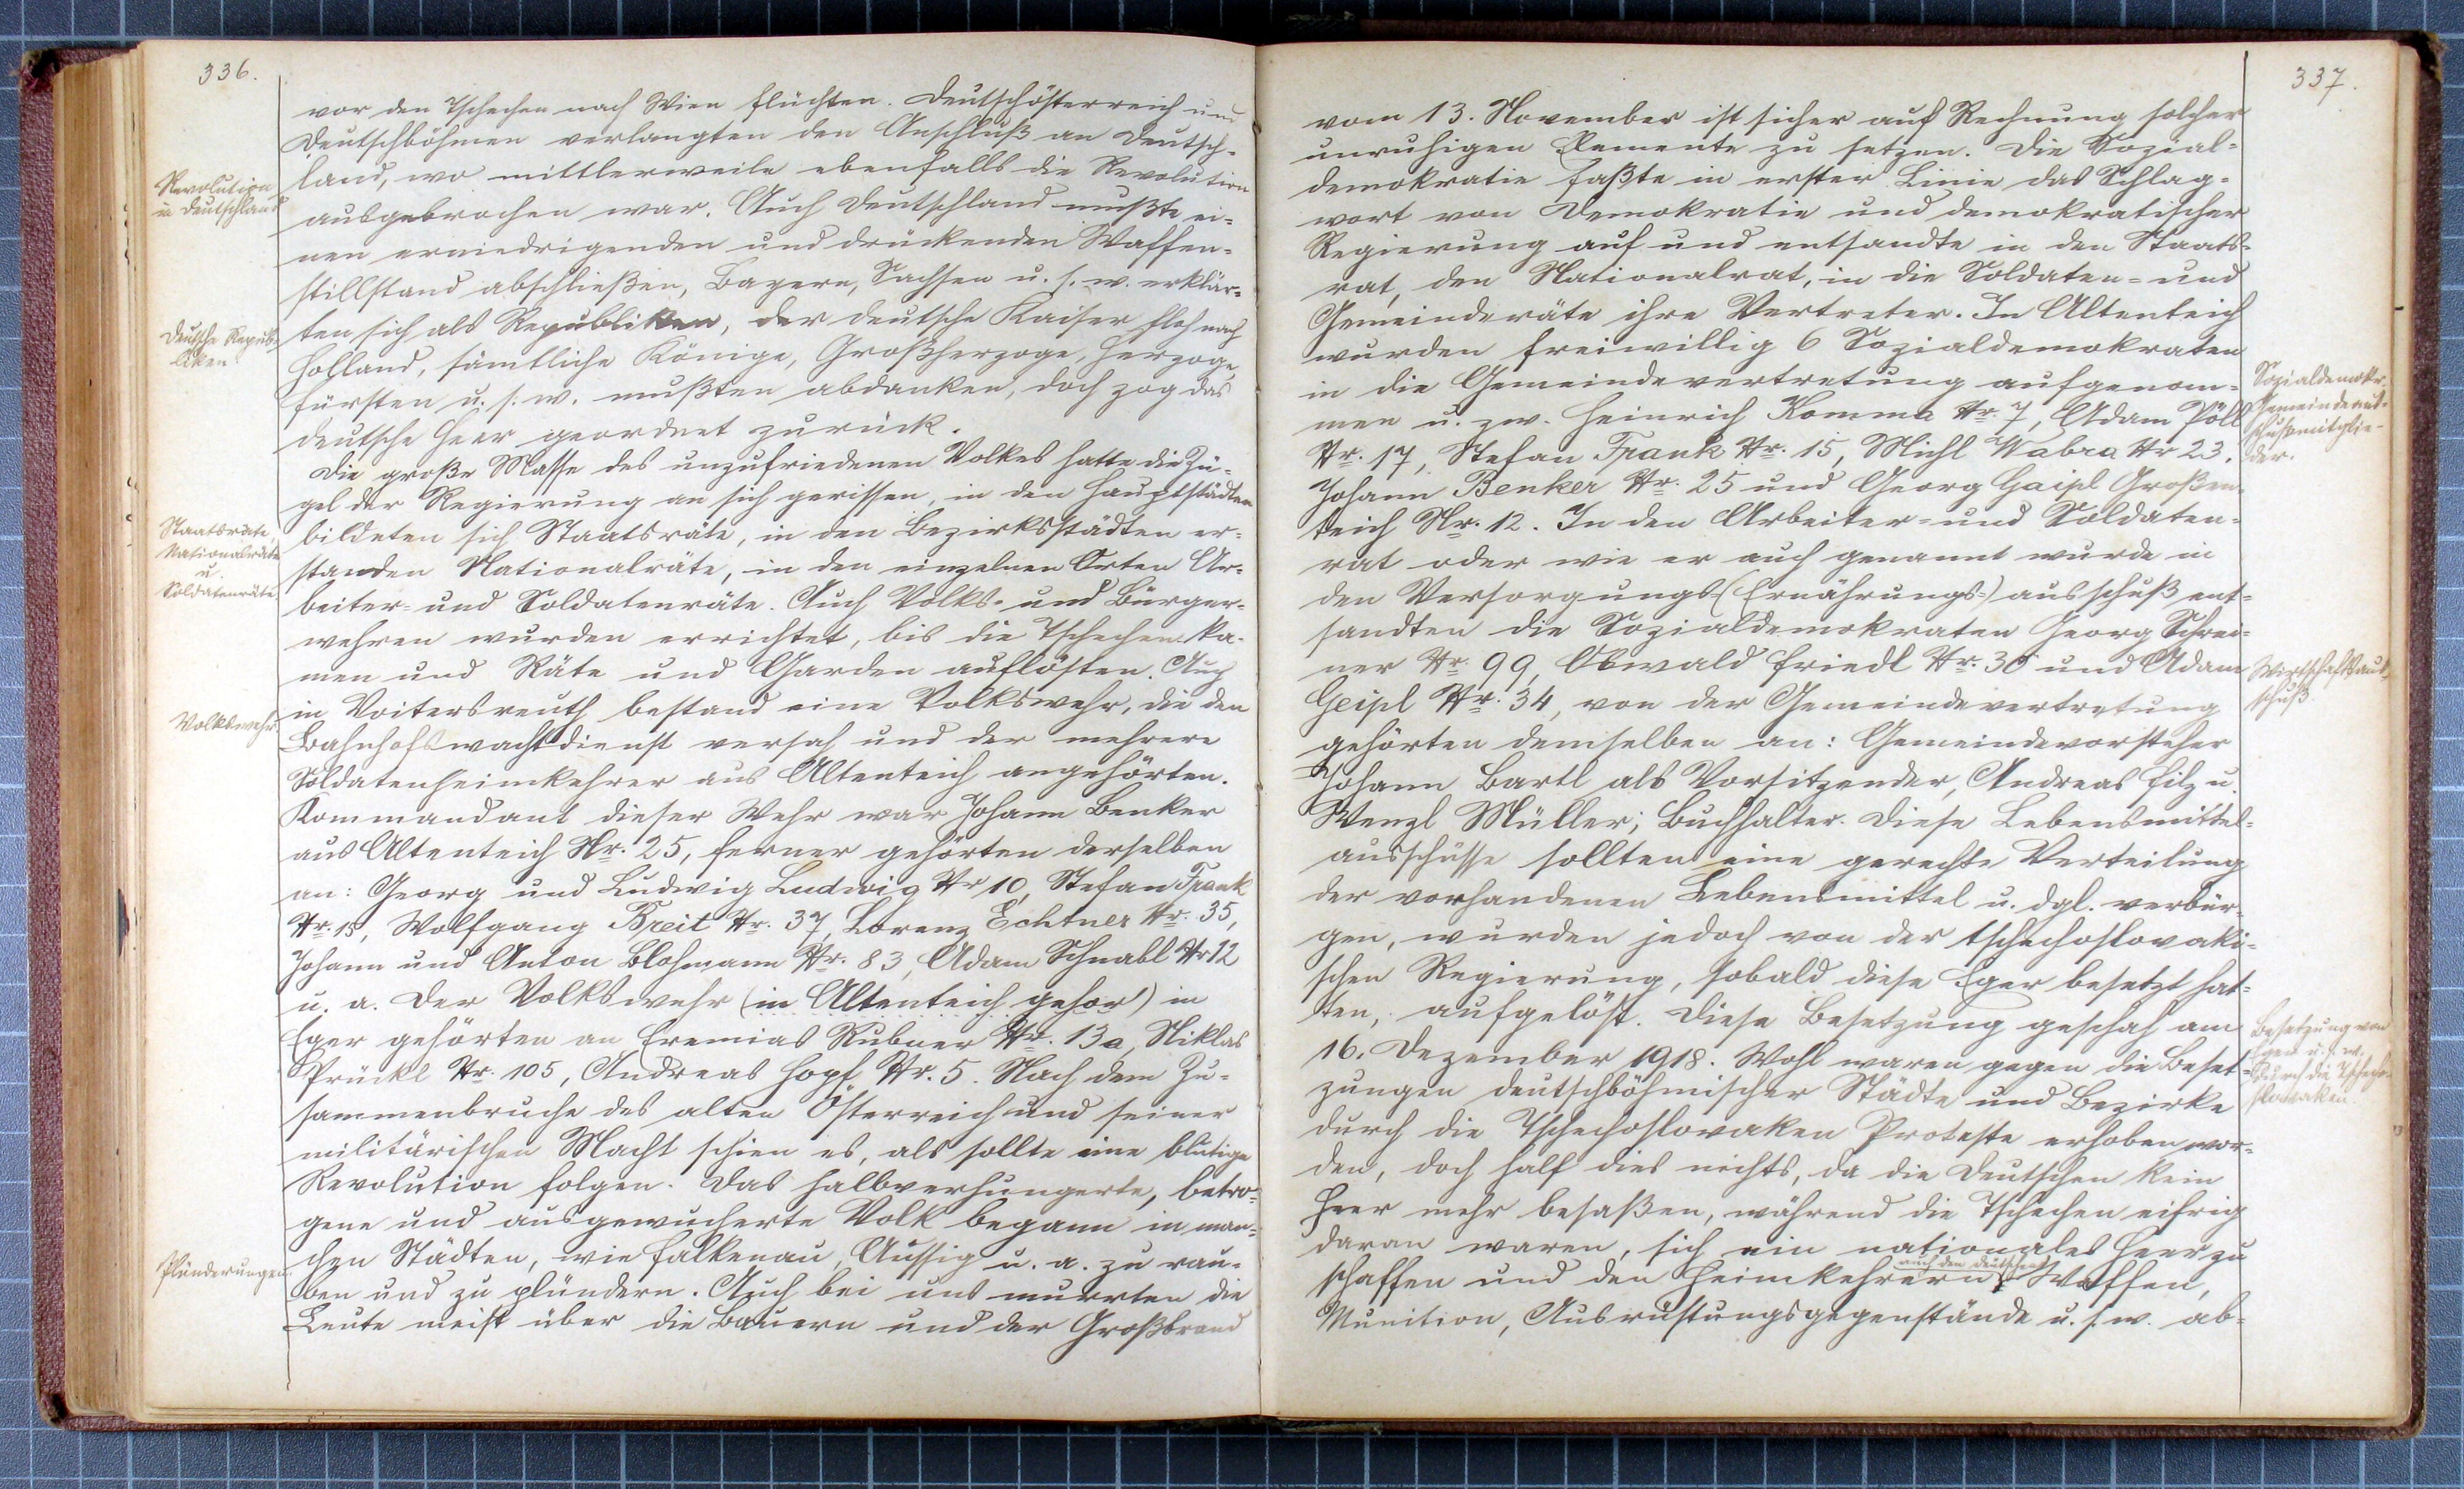 336.
vor den Tschechen nach Wien flüchten. Deutschösterreich und
Deutschböhmen verlangten den Anschluß an Deutsch-
Revolution
in Deutschland
land, wo mittlerweile ebenfalls die Revolution
ausgebrochen war. Auch Deutschland mußte ei-
nen erniedrigenden und drückenden Waffen-
stillstand abschließen, Bayern, Sachsen u. s. w. erklär-
Deutsche Repub-
liken
ten sich als Republiken, der deutsche Kaiser floh nach
Holland, sämtliche Könige, Großherzoge, Herzoge,
Fürsten u. s. w. mußten abdanken, doch zog das
deutsche Heer geordnet zurück.
Die große Masse des unzufriedenen Volkes hatte die Zü-
gel der Regierung an sich gerissen, in den Hauptstädten
Staatsräte,
Nationalräte
u.
Soldatenräte.
bildeten sich Staatsräte, in den Bezirksstädten er-
standen Nationalräte, in den einzelnen Orten Ar-
beiter- und Soldatenräte. Auch Volks- und Bürger-
wehren wurden errichtet, bis die Tschechen ka-
men und Räte und Garden auflösten. Auch
Volkswehr.
in Voitersreuth bestand eine Volkswehr, die den
Bahnhofswachtdienst versah und der mehrere
Soldatenheimkehrer aus Altenteich angehörten.
Kommandant dieser Wehr war Johann Benker
aus Altenteich Nr. 25, ferner gehörten derselben
an: Georg und Ludwig Ludwig Nr 10, Stefan Frank
Nr. 15, Wolfgang Breit Nr. 37, Lorenz Echtner Nr. 35,
Johann und Anton Bloßmann Nr. 83, Adam Schnabl Nr 12
u. a. Der Volkswehr (in Altenteich gehor) in
Eger gehörten an Eremias Rubner Nr. 13a, Niklas
Prückl Nr. 105, Andreas Hopf Nr. 5. Nach dem Zu-
sammenbruche des alten Österreich und seiner
militärischen Macht schien es, als sollte eine blutige
Revolution folgen. Das halbverhungerte, betro-
gene und ausgewucherte Volk begann in man-
Plünderungen.
chen Städten, wie Falkenau, Aussig u. a. zu rau-
ben und zu plündern. Auch bei uns murrten die
Leute meist über die Bauern und der Großbrand
337.
vom 13. November ist sicher auf Rechnung solcher
unruhigen Elemente zu setzen. Die Sozial-
demokratie faßte in erster Linie das Schlag-
wort von Demokratie und demokratischer
Regierung auf und entsandte in den Staats-
rat, den Nationalrat, in die Soldaten- und
Gemeinderäte ihre Vertreter. In Altenteich
wurden freiwillig 6 Sozialdemokraten
in die Gemeindevertretung aufgenom-
Sozialdemokr.
Gemeindeaus-
schußmitglie-
der.
men u. zw. Heinrich Komma Nr. 7, Adam Pöll
Nr. 17, Stefan Frank Nr. 15, Michl Wabra Nr 23,
Johann Benker Nr. 25 und Georg Gaipl Großen-
teich Nr. 12. In den Arbeiter- und Soldaten-
rat oder wie er auch genannt wurde in
den Versorgungs-(Ernährungs-)ausschuß, ent-
sandten die Sozialdemokraten Georg Schrei-
ner Nr. 99, Oswald Friedl Nr. 36 und Adam
Wirtschaftsaus-
schuß.
Geipl Nr. 34, von der Gemeindevertretung
gehörten demselben an: Gemeindevorsteher
Johann Bartl als Vorsitzender, Andreas Filz u.
Wenzl Müller; Buchhalter. Diese Lebensmittel-
ausschüsse sollten eine gerechte Verteilung
der vorhandenen Lebensmittel u. dgl. verbür-
gen, wurden jedoch von der tschechoslovaki-
schen Regierung, sobald diese Eger besetzt hat-
ten, aufgelöst. Diese Besetzung geschah am
Besetzung von
Eger u. s. w.
durch die Tschecho-
slowaken.
16. Dezember 1918. Wohl waren gegen die Beset-
zungen deutschböhmischer Städte und Bezirke
durch die Tschechoslovaken Proteste erhoben wor-
den, doch half dies nichts, da die Deutschen kein
Heer mehr besaßen, während die Tschechen eifrig
daran waren, sich ein nationales Heer zu
auch den deutschen
schaffen und den Heimkehrern Waffen,
Munition, Ausrüstungsgegenstände u. s. w. ab-